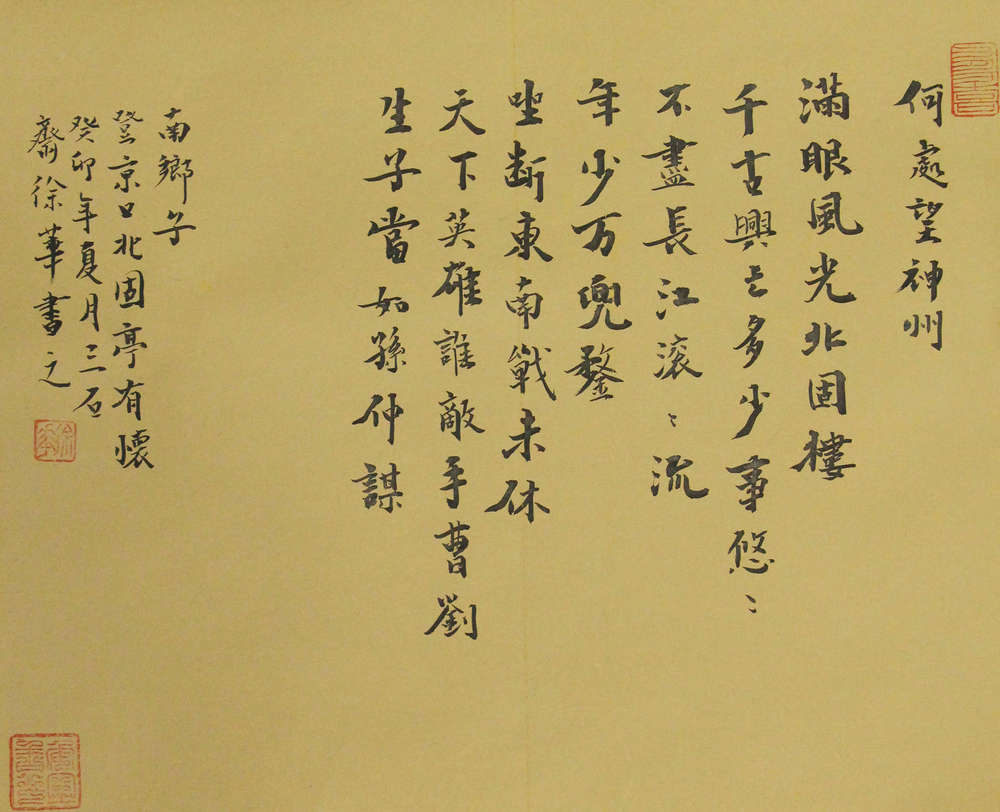 何處望神州
滿眼風光北固樓
千古興亡多少事悠〻
不盡長江滚〻流
年少万兜鍪
坐断東南戰未休
天下英雄誰敵手曹劉
生子當如孫仲謀
南鄉子
登京口北固亭有懷
癸卯年夏月三石
齋徐華書之